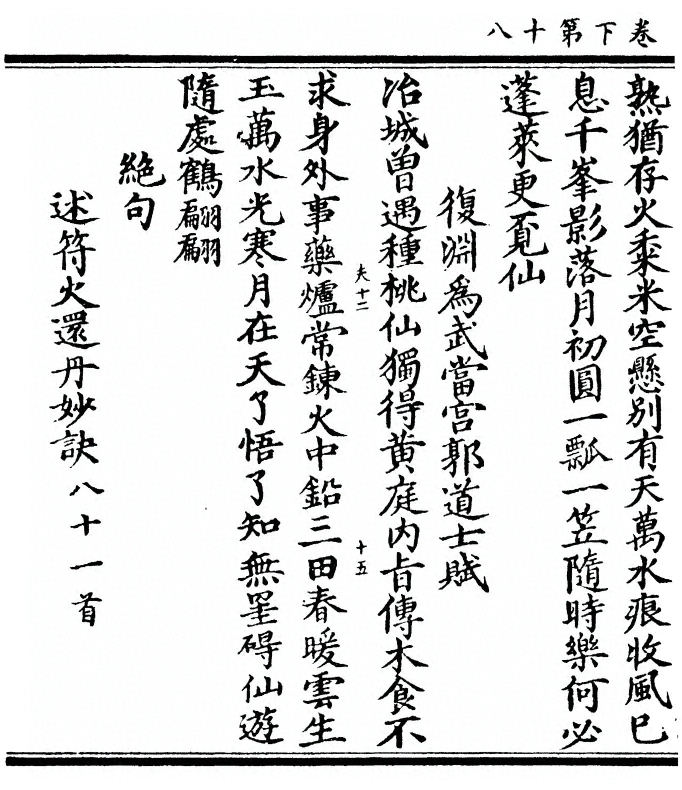 卷下第十八
熟猶存火黍米空懸別有天萬水痕收風已
息千峯影落月初圓一瓢一笠隨時樂何必
蓬萊更覓仙
復淵為武當宮郭道士賦
冶城曽遇種桃仙獨得黄庭内旨傳木食不
夫十二
十五
求身外事藥爐常鍊火中鉛三田春暖雲生
玉萬水光寒月在天了悟了知無罣碍仙遊
隨處鶴翩翩
絕句
述符火還丹妙訣八十一首